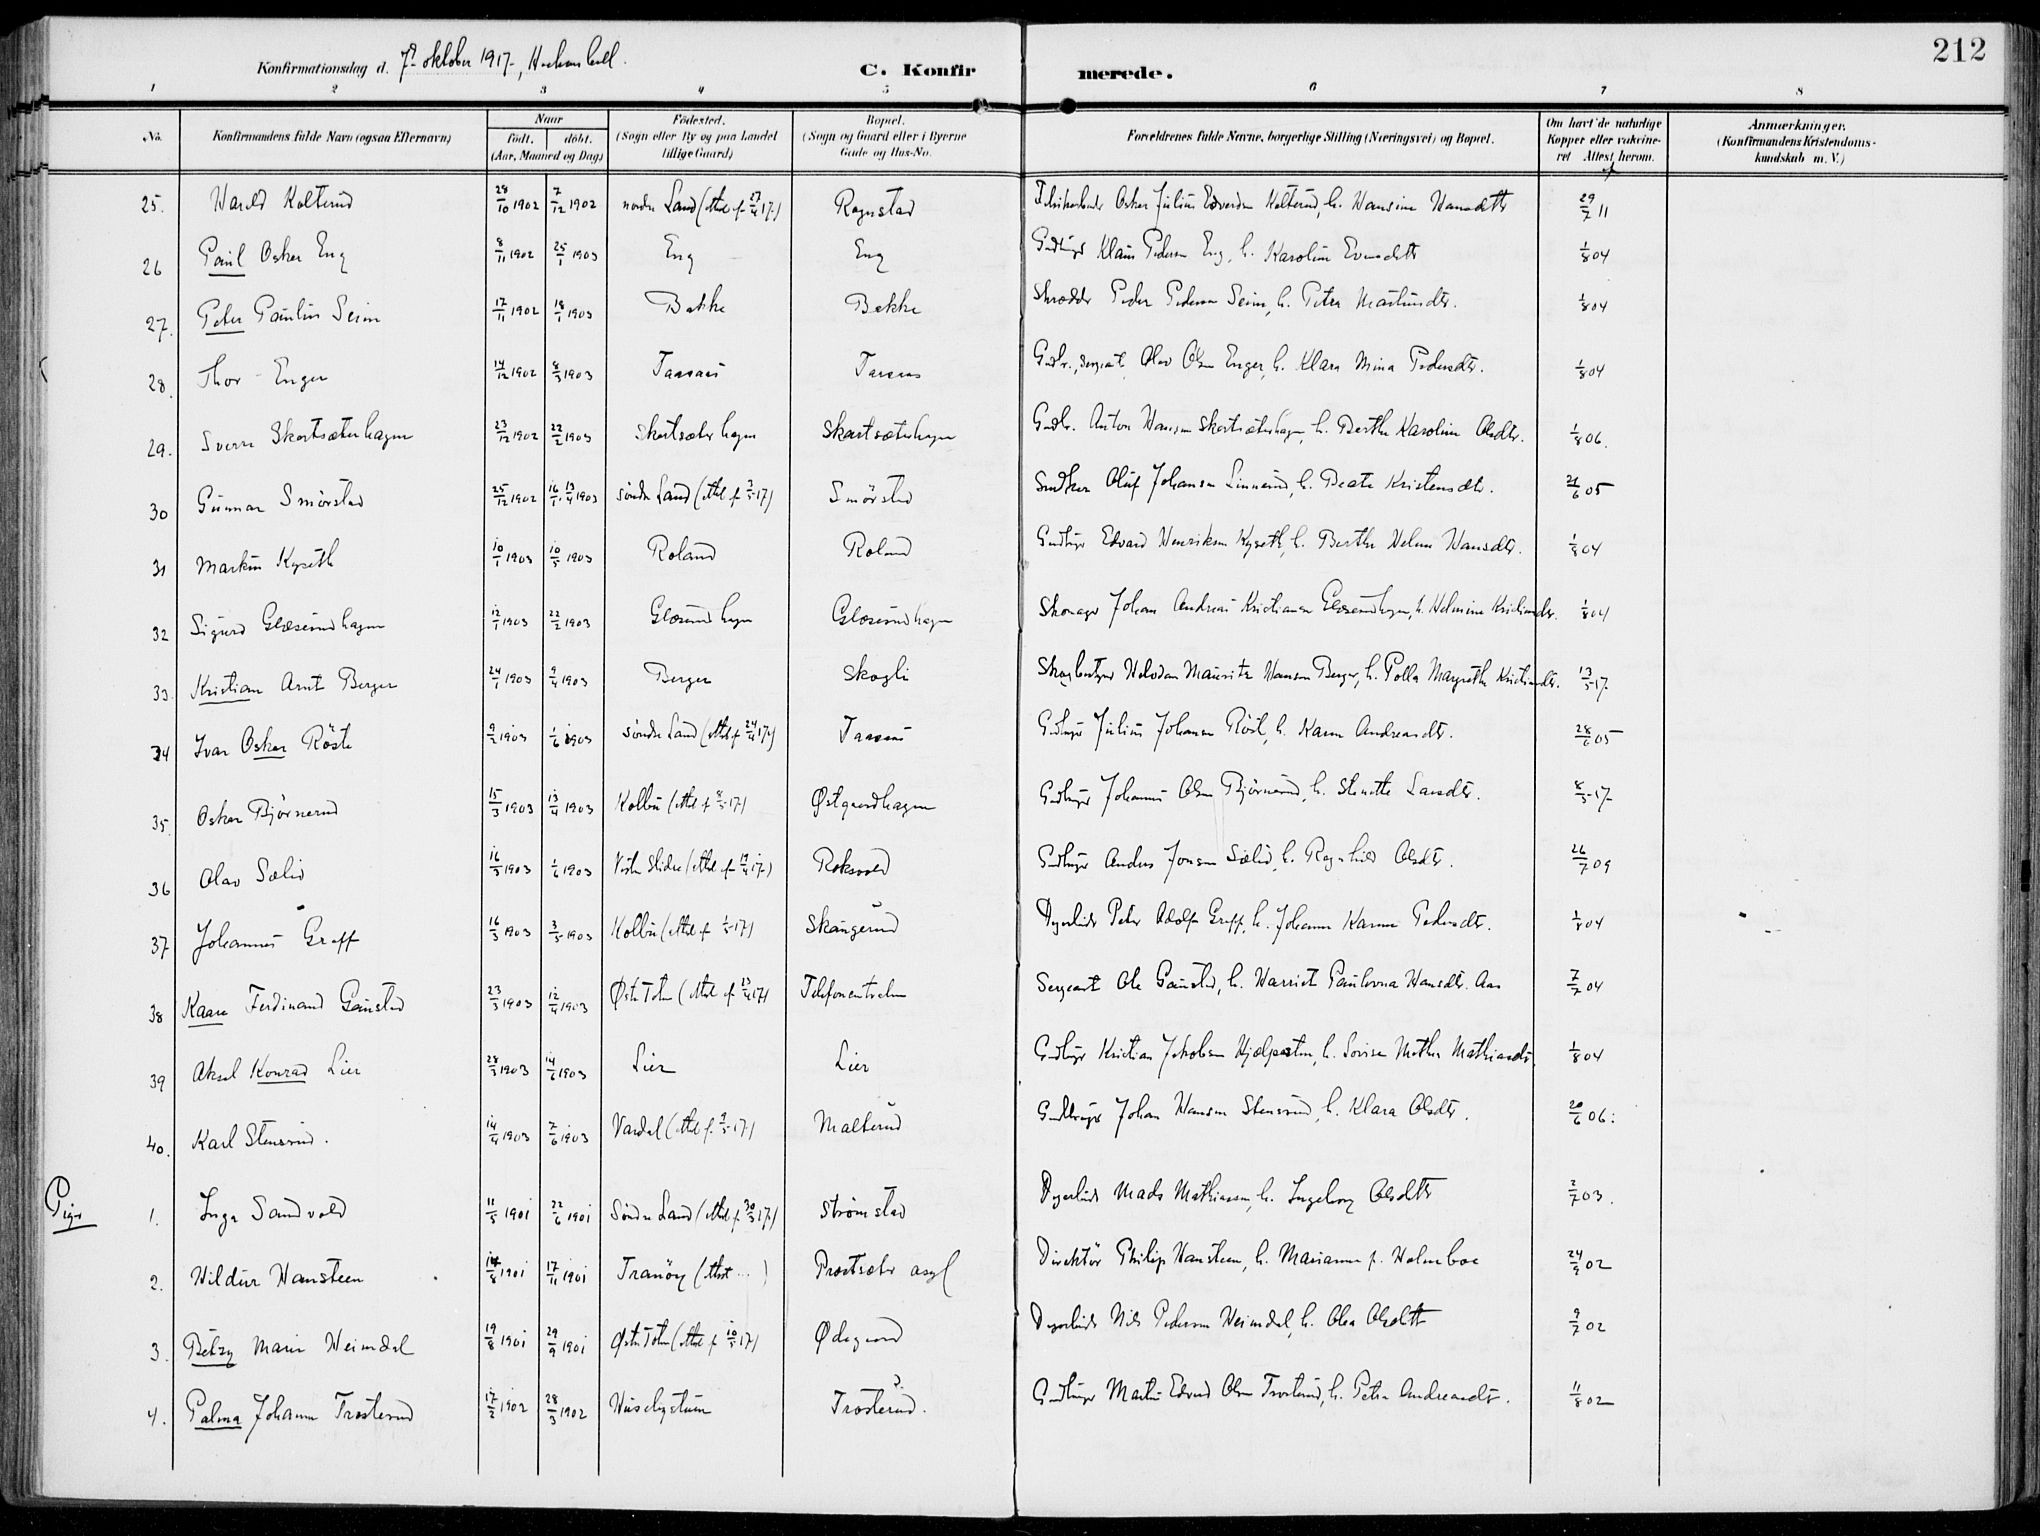 212
Konfirmationsdag d. 7de oktober 1917
C. Konfirmerede.
1 2 3 4 5 6 7 8
No. Konfirmandens fulde Navn (ogsaa Efternavn) Naar födt. döbt. (Aar, Maaned og Dag) Födested. (Sogn eller By og paa Landet tillige Gaard) Bopæl. (Sogn og Gaard eller i Byerne Gade og Hus-No. Forældrenes fulde Navne, borgerlige Stilling (Næringsvei) og Bopæl. Om havt de naturlige Kopper eller vakcineret Attest herom. Anmærkninger. (Konfirmandens Kristendomskundskab m. V.)
25. Harald Kolterud 28/10 1902 7/12 1902 nordre Land (Attest f. 27/4 17) Rognstad Oskar Julius Edvardsen Kolterud, h. Hansine Hansdtr 29/7 11
26 Paul Oskar Eng 8/11 1902 25/1 1903 Eng Eng Gaardbruger Klaus Pedersen Eng, h. Karoline Evensdtr 1/8 04
27. Peter Paulin Seim 17/11 1902 18/1 1903 Bakke Bakke Skrædder Peder Pedersen Seim, h. Petra Martinsdtr. 1/8 04
28. Thor Enger 14/12 1902 8/3 1903 Taraus Taraus Gaardbr., Sergeant Olav Olsen Enger, h. Klara Mina Pedersdtr. 1/8 04
29. Sverre Skartsæterhagen 23/12 1902 22/2 1903 Skartsæterhagen Skartsæterhagen Gaardbr. Anton Hansen Skartsæterhagen, h. Berthe Karoline Olsdtr. 1/8 06.
30 Gunnar Smörstad 25/12 1902 13/4 1903 söndre Land (Attest f. 3/5 17) Smörstad Oluf Johansen Linnerud, h. Beate Kristensdtr. 21/6 05
31 Markus Kyseth 10/1 1903 10/5 1903 Roland Roland Gaardbruger Edvard Henriksen Kyseth, h. Berthe Helene Hansdtr. 1/8 04
32 Sigurd Glæserudhagen 12/1 1903 22/2 1903 Glæserudhagen Glæserudhagen Skomager Johan Andreas Kristiansen Glæserudhagen, h. Helmine Kristiansdtr. 1/8 04
33. Kristian Arnt Berger 24/1 1903 9/4 1903 Berger Skogli Skogbetjent Halvdan Mauritz Hansen Berger, h. Polla Margrethe Kristiansdtr. 13/5 17
34 Ivar Oskar Röste 9/2 1903 1/6 1903 Söndre Land (Attest f. 24/4 17) Taraus Gaardbruger Julius Johansen Röste, h. Karen Andreasdtr. 28/6 05
35. Oskar Björnerud 15/3 1903 13/4 1903 Kolbu (Attest f. 8/5 17) Østgaardhagen Gaardbruger Johannes Olsen Björnerud, h. Stinette Larsdtr. 8/5 17
36 Olav Sælid 16/3 1903 1/6 1903 Vestre Slidre (Attest f. 19/4 17) Roksvold Gaardbruger Anders Jonsen Sælid, h. Ragnhild Olsdtr. 26/7 09
37 Johannes Greff 16/3 1903 3/5 1903 Kolbu (Attest f. 1/5 17) Skaugerud Dagarbeider Peter Adolf Greff, h. Johanne Karine Pedersdtr. 1/8 04
38 Kaare Ferdinand Gaustad 23/3 1903 12/4 1903 Østre Toten (Attest f. 23/4 17) Telefoncentralen Sergeant Ole Gaustad, h. Harriet Paulovna Hansdtr. Aas 7/7 04
39 Aksel Konrad Lier 28/3 1903 14/6 1903 Lier Lier Gaardbruger Kristian Jakobsen Hjelpesten, h. Lovise Mathea Mathiasdtr. 1/8 04
40. Karl Stensrud. 14/4 1903 7/6 1903 Vardal (Attest f. 9/5 17) Malterud Gaardbruger Johan Hansen Stensrud, h. Klara Olsdtr. 20/6 06.
Piger
1. Inga Sandvold 11/5 1901 22/6 1901 Söndre Land (Attest f. 30/3 17) Strömstad Dagarbeider Mads Mathiassen, h. Ingeborg Olsdtr 2/7 03.
2. Hildur Hansteen 14/8 1901 17/11 1901 Tranöy (Attest ...) Prostsæter asyl Direktör Philip Hansteen, h. Marianne f. Holmboe 24/9 02
3. Betzy Marie Heimdal 19/8 1901 29/9 1901 Østre Toten (Attest f. 10/5 17) Ødegaard Dagarbeider Nils Pedersen Heimdal, h. Olea Olsdtr 9/7 02
4. Palma Johanne Trosterud 17/2 1902 28/3 1902 Huseby Trosterud. Gaardbruger Martin Edvard Olsen Trosterud, h. Petra Andreasdtr. 11/8 02